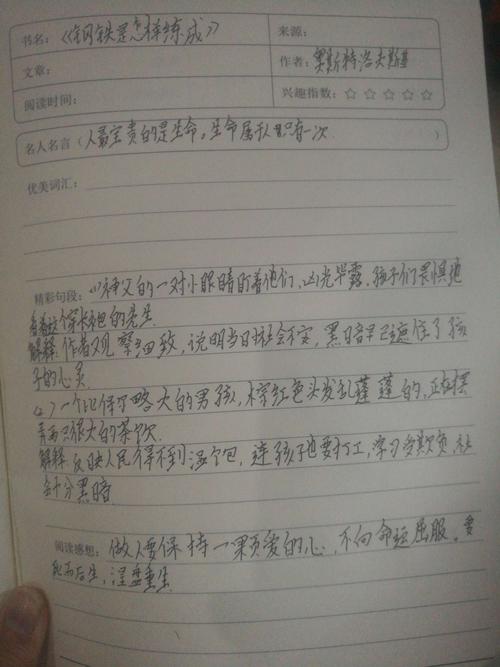 书名：《钢铁是怎样练成》
来源：
文章：
作者：奥斯特洛夫斯基
阅读时间：
兴趣指数：☆ ☆ ☆ ☆ ☆
名人名言（人最宝贵的是生命，生命属于人只有一次）
优美词汇：
精彩句段：(1)神父的一对小眼睛盯着他们，凶光毕露，孩子们畏惧地
看着这个穿长袍的先生
解释：作者观察细致，说明当日社会不安，黑暗早已遮住了孩
子的心灵
(2)一个比保尔略大的男孩，棕红色头发乱蓬蓬的，正在摆
弄两只很大的茶炊
解释：反映人民得不到温饱，连孩子也要打工，
会十分黑暗
阅读感想：做人要保持一颗爱的心，不向命运屈服，要
死而后生，涅盘重生